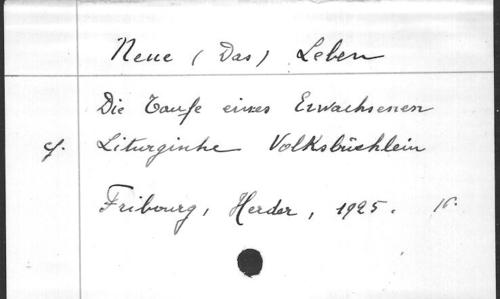 Neue (Das) Leben
Die Taufe eines Erwachsenen
cf. Liturgische Volksbüchlein
Fribourg, Herder, 1925.